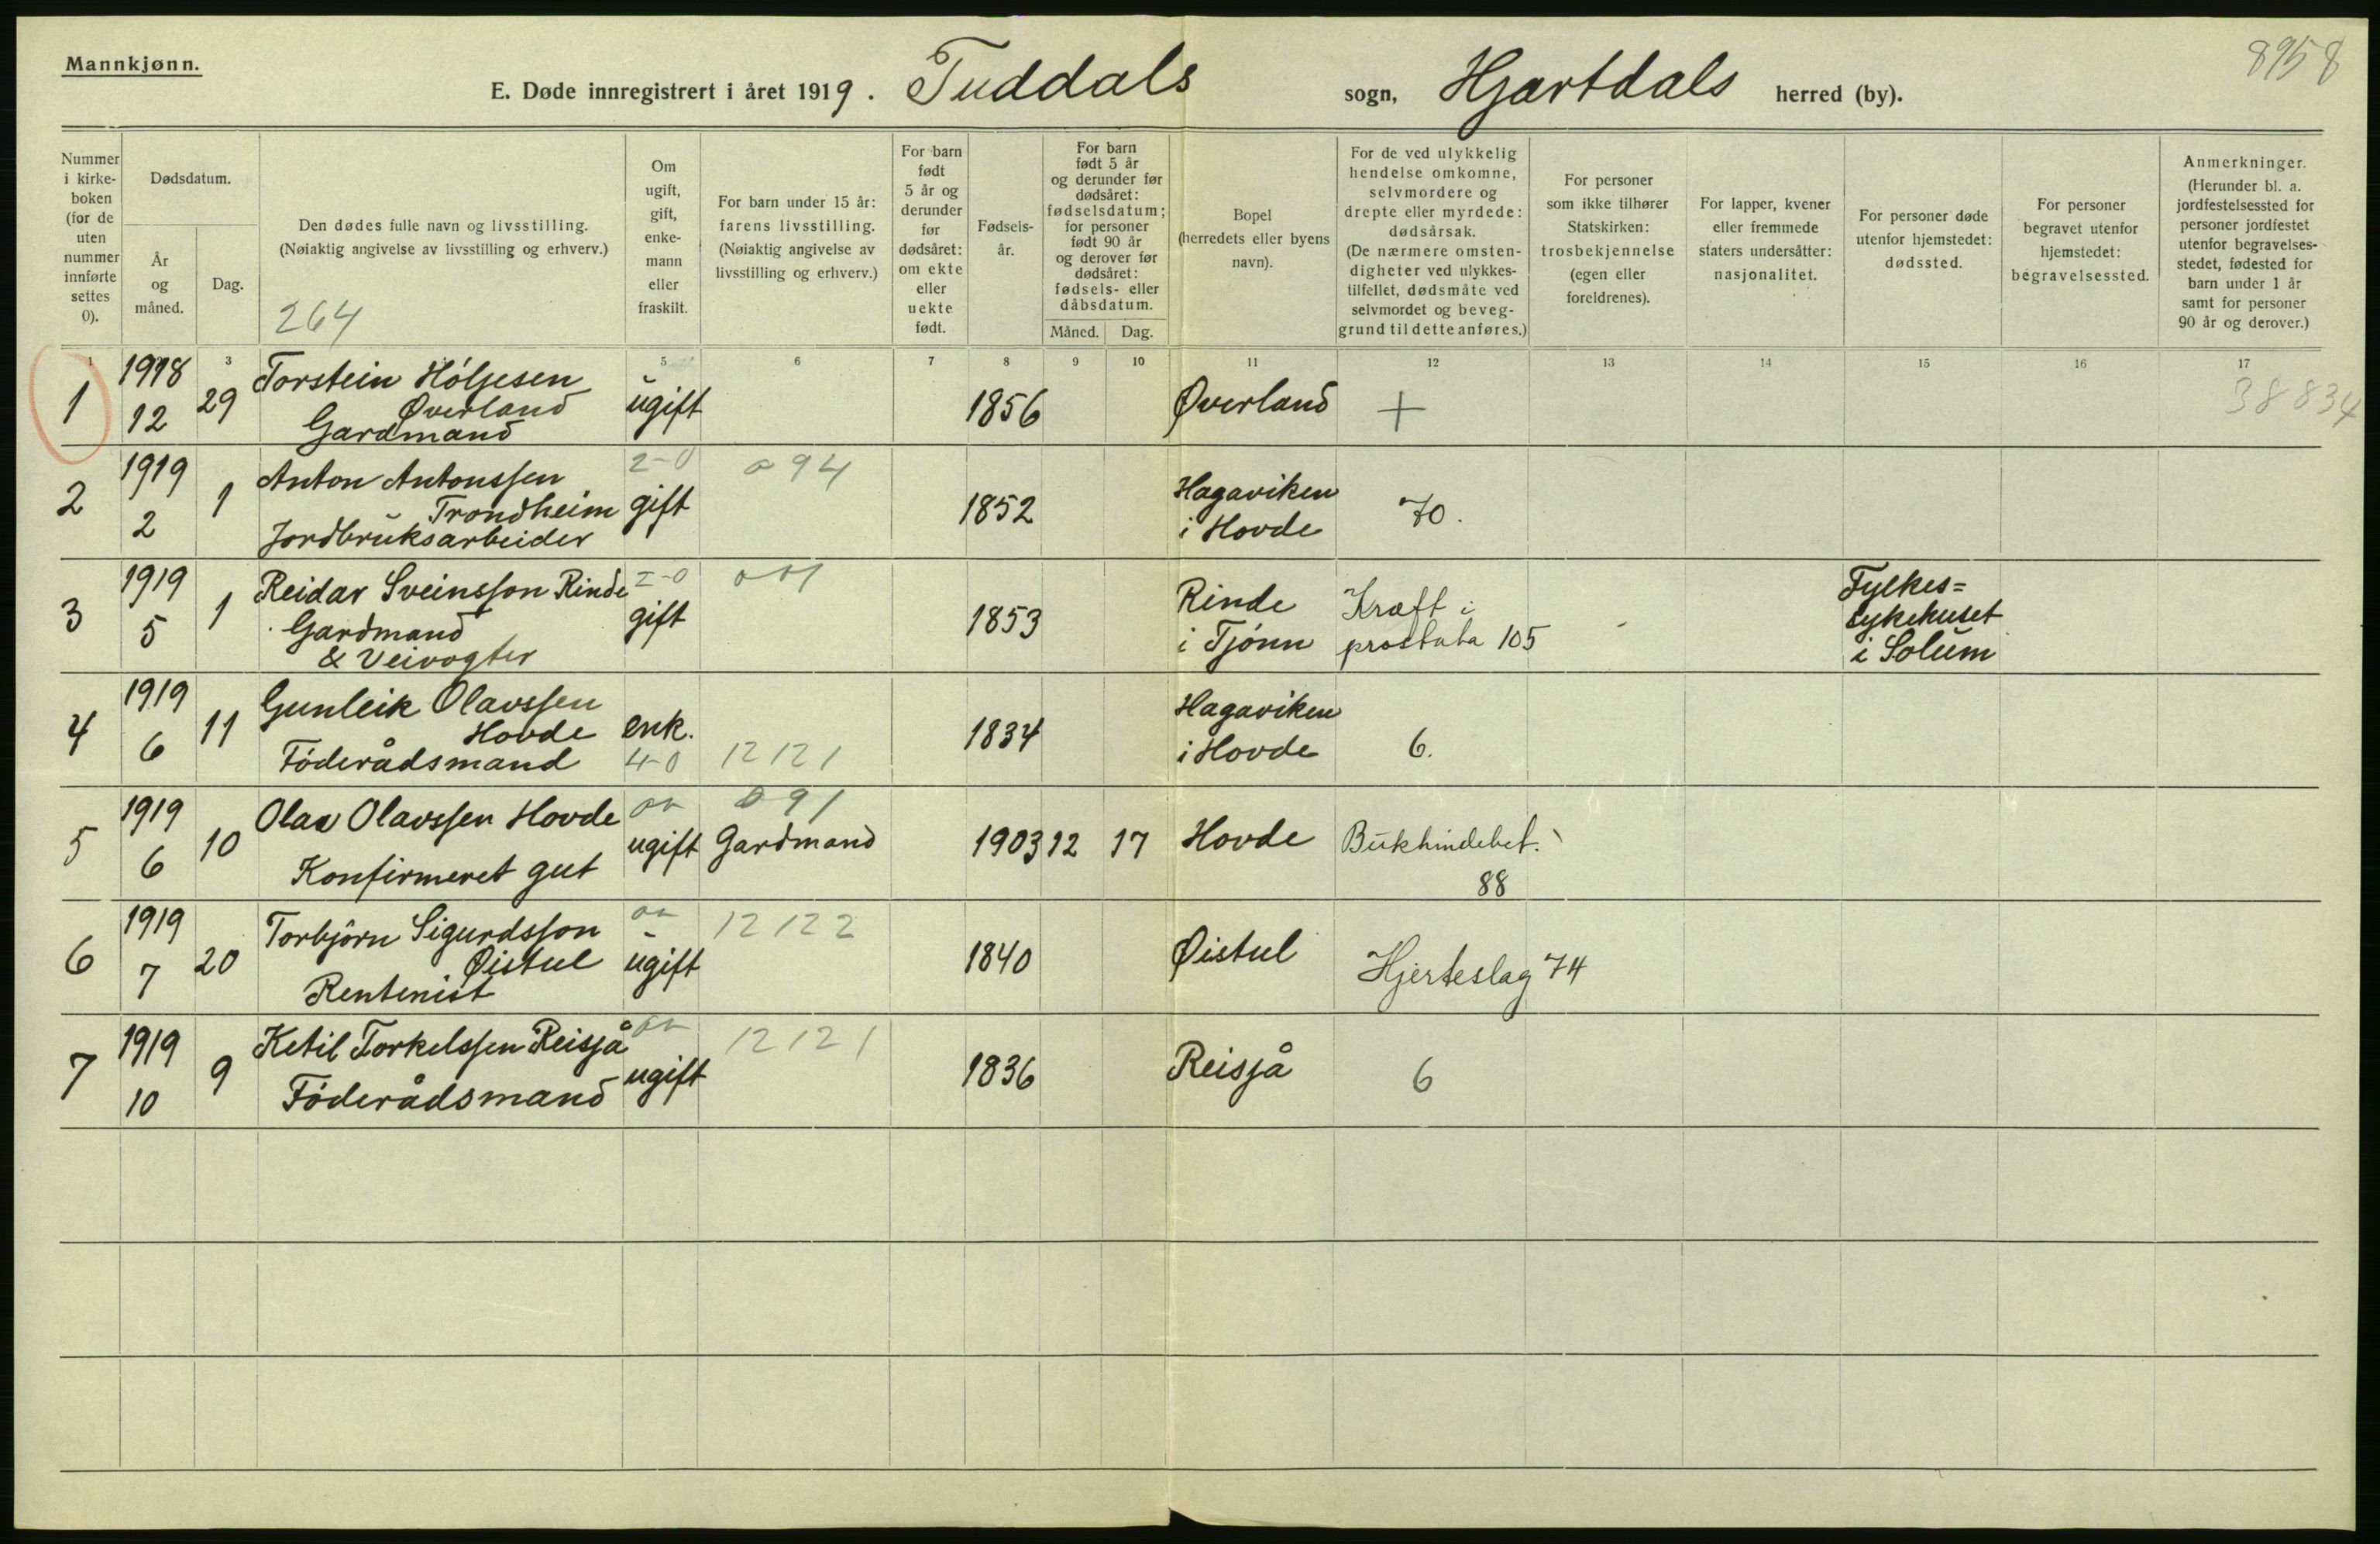 Mannkjønn.
8958
E. Døde innregistrert i året 1919. Tuddals sogn, Hjartdals herred (by).
Nummer i kirke-boken (for de uten nummer innførte settes 0).
Dødsdatum.
År og måned.
Dag.
Den dødes fulle navn og livsstilling.
(Nøiaktig angivelse av livsstilling og erhverv.)
264
Om ugift, gift, enke-mann eller fraskilt.
For barn under 15 år: farens livsstilling. (Nøiaktig angivelse av livsstilling og erhverv.)
For barn født 5 år og derunder før dødsåret: om ekte eller uekte født.
Fødsels-år.
For barn født 5 år og derunder før dødsåret: fødselsdatum; for personer født 90 år og derover før dødsåret: fødsels- eller dåbsdatum.
Måned.
Dag.
Bopel (herredets eller byens navn).
For de ved ulykkelig hendelse omkomne, selvmordere og drepte eller myrdede: dødsårsak. (De nærmere omsten-digheter ved ulykkes-tilfellet, dødsmåte ved selvmordet og beveg-grund til dette anføres.)
For personer som ikke tilhører Statskirken: trosbekjennelse (egen eller foreldrenes).
For lapper, kvener eller fremmede staters undersåtter: nasjonalitet.
For personer døde utenfor hjemstedet: dødssted.
For personer begravet utenfor hjemstedet: begravelsessted.
Anmerkninger. (Herunder bl. a. jordfestelsessted for personer jordfestet utenfor begravelses-stedet, fødested for barn under 1 år samt for personer 90 år og derover.)
1 3 5 6 7 8 9 10 11 12 13 14 15 16 17
1 1918 12 29 Torstein Hóljesen Øverland Gardmand ugift 1856 Øverland + 38834
2 1919 2 1 Anton Antonssen Trondheim Jordbruksarbeider 2-0 gift 094 1852 Hagaviken i Hovde 70.
3 1919 5 1 Reidar Sveinsson Rinde Gardmand & Veivogter I-0 gift 1853 Rinde i Tjónn Kræft i prostata 105 Fylkes= sykehuset i Solum
4 1919 6 11 Gunleik Olavssen Hovde Fóderådsmand enk. 4-0 12121 1834 Hagaviken i Hovde 6.
5 1919 6 10 Olav Olavssen Hovde Konfirmeret gut ugift 091 Gardmand 1903 12 17 Hovde Bukhindebet. 88
6 1919 7 20 Torbjörn Sigurdsson Øistul Rentenist ugift 12122 1840 Øistul Hjerteslag 74
7 1919 10 9 Ketil Torkelssen Reisjå Fóderådsmand ugift 12121 1836 Reisjå 6